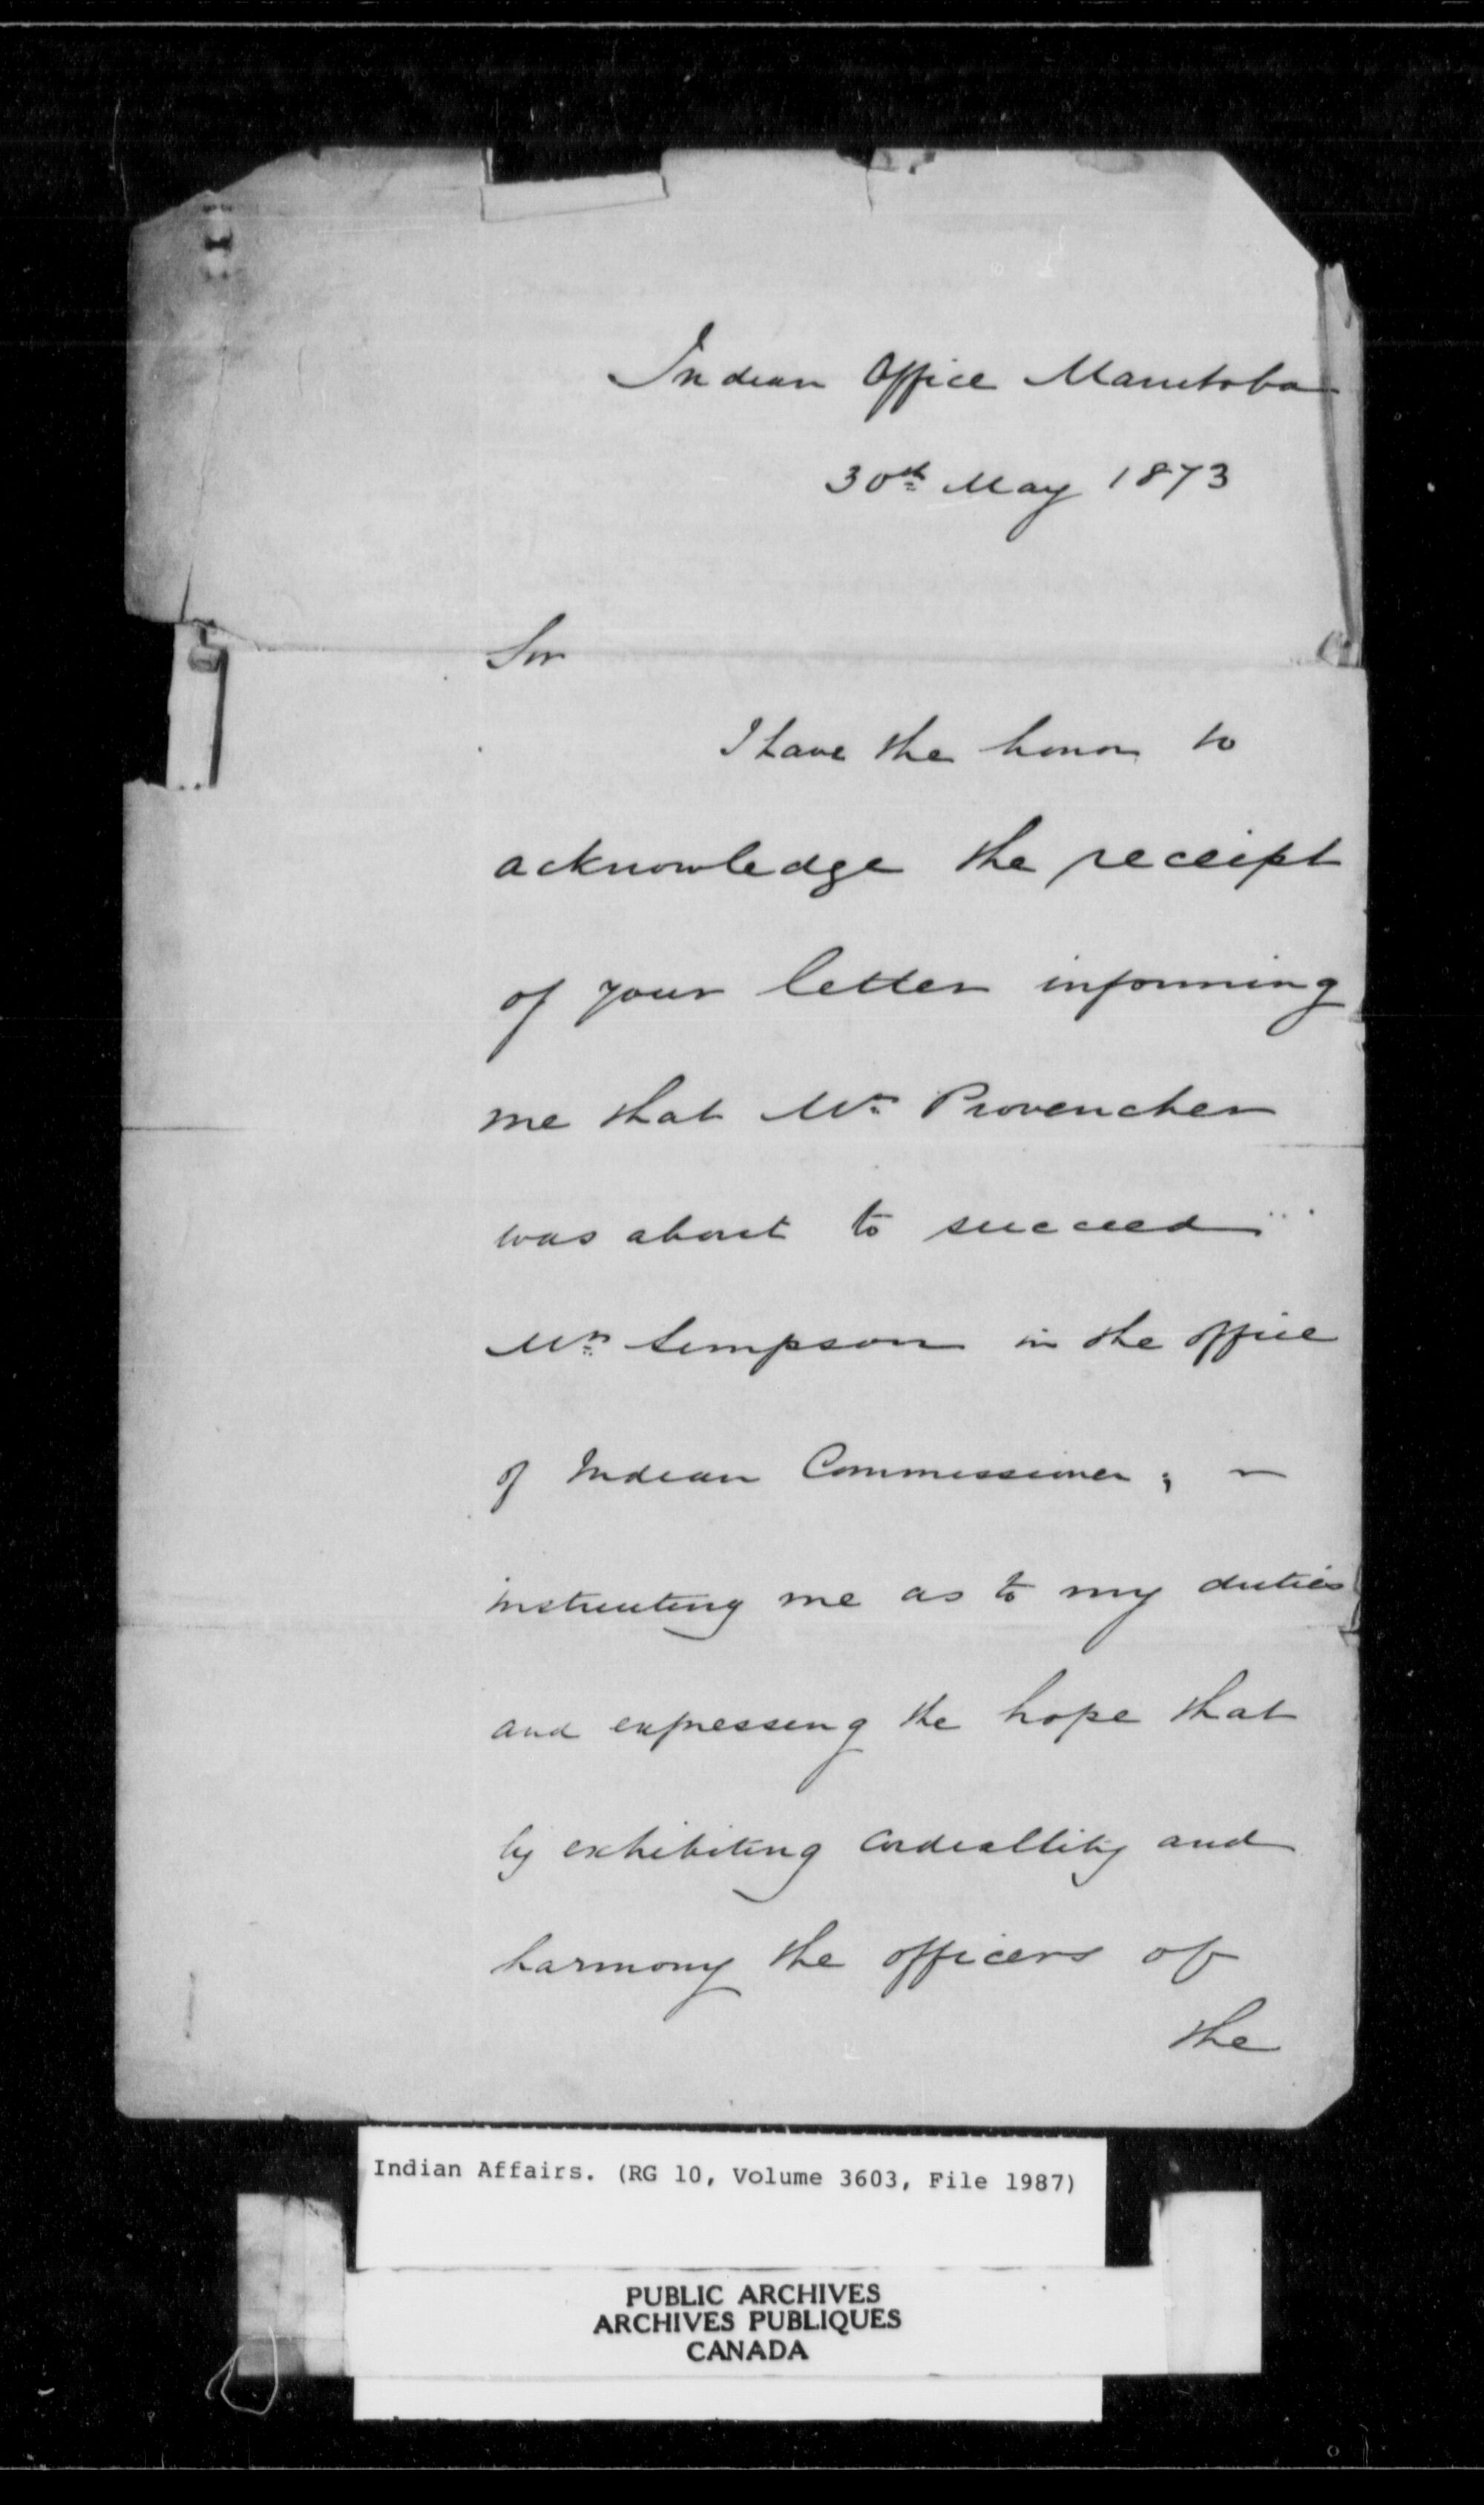 Indian Office Manitoba
30th May 1873
Sir
I have the honor to
acknowledge the receipt
of your letter informing
me that Mr. Provencher
was about to succeed
Mr. Simpson in the office
of Indian Commissioner; —
instructing me as to my duties
and expressing the hope that
by exhibiting cordiallity and
harmony the officers of
the
Indian Affairs. (RG 10, Volume 3603, File 1987)
PUBLIC ARCHIVES
ARCHIVES PUBLIQUES
CANADA